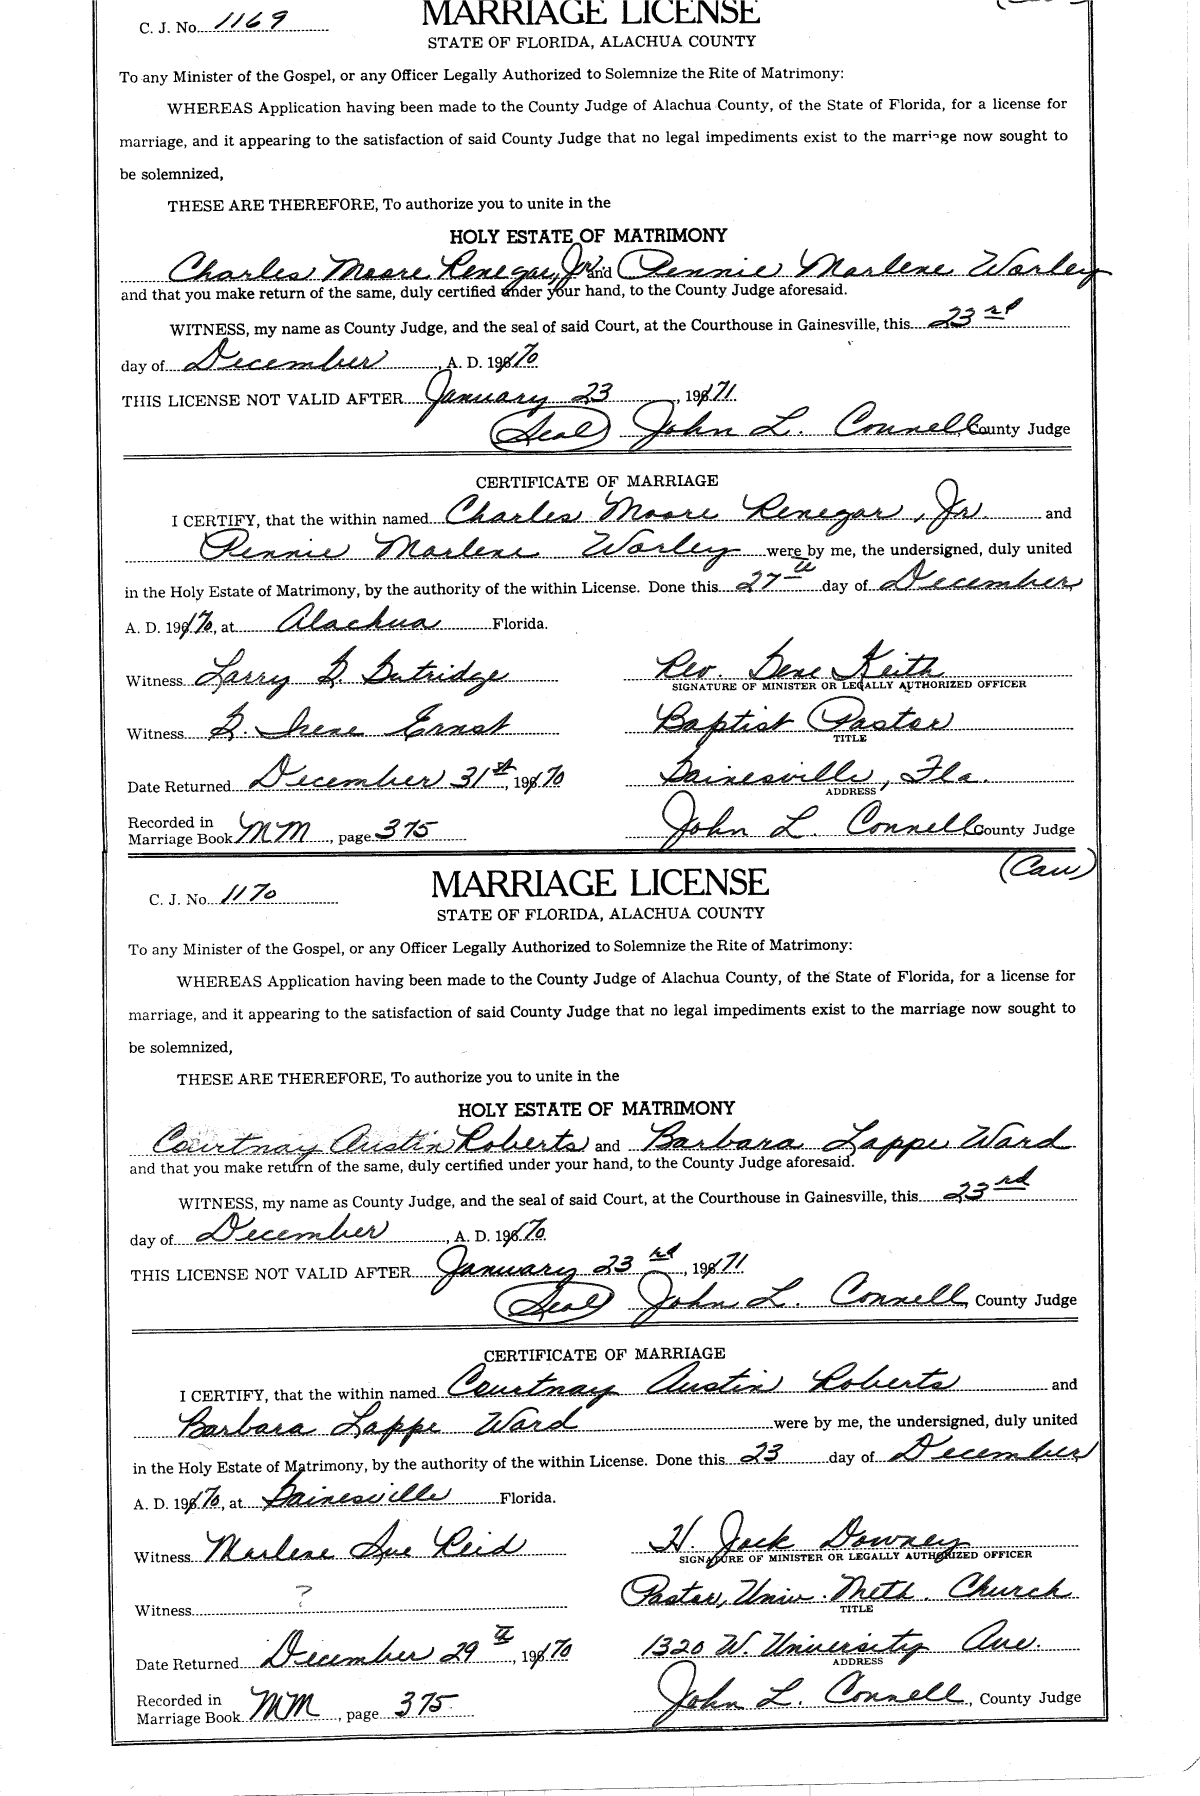 C. J. No. 1169
MARRIAGE LICENSE
STATE OF FLORIDA, ALACHUA COUNTY
To any Minister of the Gospel, or any Officer Legally Authorized to Solemnize the Rite of Matrimony:
WHEREAS Application having been made to the County Judge of Alachua County, of the State of Florida, for a license for
marriage, and it appearing to the satisfaction of said County Judge that no legal impediments exist to the marriage now sought to
be solemnized,
THESE ARE THEREFORE, To authorize you to unite in the
HOLY ESTATE OF MATRIMONY
Charles Moore Renegar, Jr. and Pennie Marlene Worley
and that you make return of the same, duly certified under your hand, to the County Judge aforesaid.
WITNESS, my name as County Judge, and the seal of said Court, at the Courthouse in Gainesville, this 23rd
day of December, A. D. 1970
THIS LICENSE NOT VALID AFTER January 23, 1971.
(Seal) John L. Connell County Judge
CERTIFICATE OF MARRIAGE
I CERTIFY, that the within named Charles Moore Renegar, Jr. and
Pennie Marlene Worley were by me, the undersigned, duly united
in the Holy Estate of Matrimony, by the authority of the within License. Done this 27th day of December,
A. D. 1970, at Alachua Florida.
Witness Larry G. Gutridge Rev. Gene Keith
SIGNATURE OF MINISTER OR LEGALLY AUTHORIZED OFFICER
Witness G. Irene Ernst Baptist Pastor
TITLE
Date Returned December 31st, 1970 Gainesville, Fla.
ADDRESS
Recorded in
Marriage Book MM, page 375 John L. Connell County Judge
(Cau)
C. J. No. 1170
MARRIAGE LICENSE
STATE OF FLORIDA, ALACHUA COUNTY
To any Minister of the Gospel, or any Officer Legally Authorized to Solemnize the Rite of Matrimony:
WHEREAS Application having been made to the County Judge of Alachua County, of the State of Florida, for a license for
marriage, and it appearing to the satisfaction of said County Judge that no legal impediments exist to the marriage now sought to
be solemnized,
THESE ARE THEREFORE, To authorize you to unite in the
HOLY ESTATE OF MATRIMONY
Courtnay Austin Roberts and Barbara Lappe Ward
and that you make return of the same, duly certified under your hand, to the County Judge aforesaid.
WITNESS, my name as County Judge, and the seal of said Court, at the Courthouse in Gainesville, this 23rd
day of December, A. D. 1970.
THIS LICENSE NOT VALID AFTER January 23rd, 1971.
(Seal) John L. Connell, County Judge
CERTIFICATE OF MARRIAGE
I CERTIFY, that the within named Courtnay Austin Roberts and
Barbara Lappe Ward were by me, the undersigned, duly united
in the Holy Estate of Matrimony, by the authority of the within License. Done this 23 day of December,
A. D. 1970, at Gainesville Florida.
Witness Marlene Sue Reid H. Jack Downey
SIGNATURE OF MINISTER OR LEGALLY AUTHORIZED OFFICER
Witness ? Pastor, Univ. Meth. Church
TITLE
Date Returned December 29th, 1970 1320 W. University Ave.
ADDRESS
Recorded in
Marriage Book MM, page 375 John L. Connell, County Judge